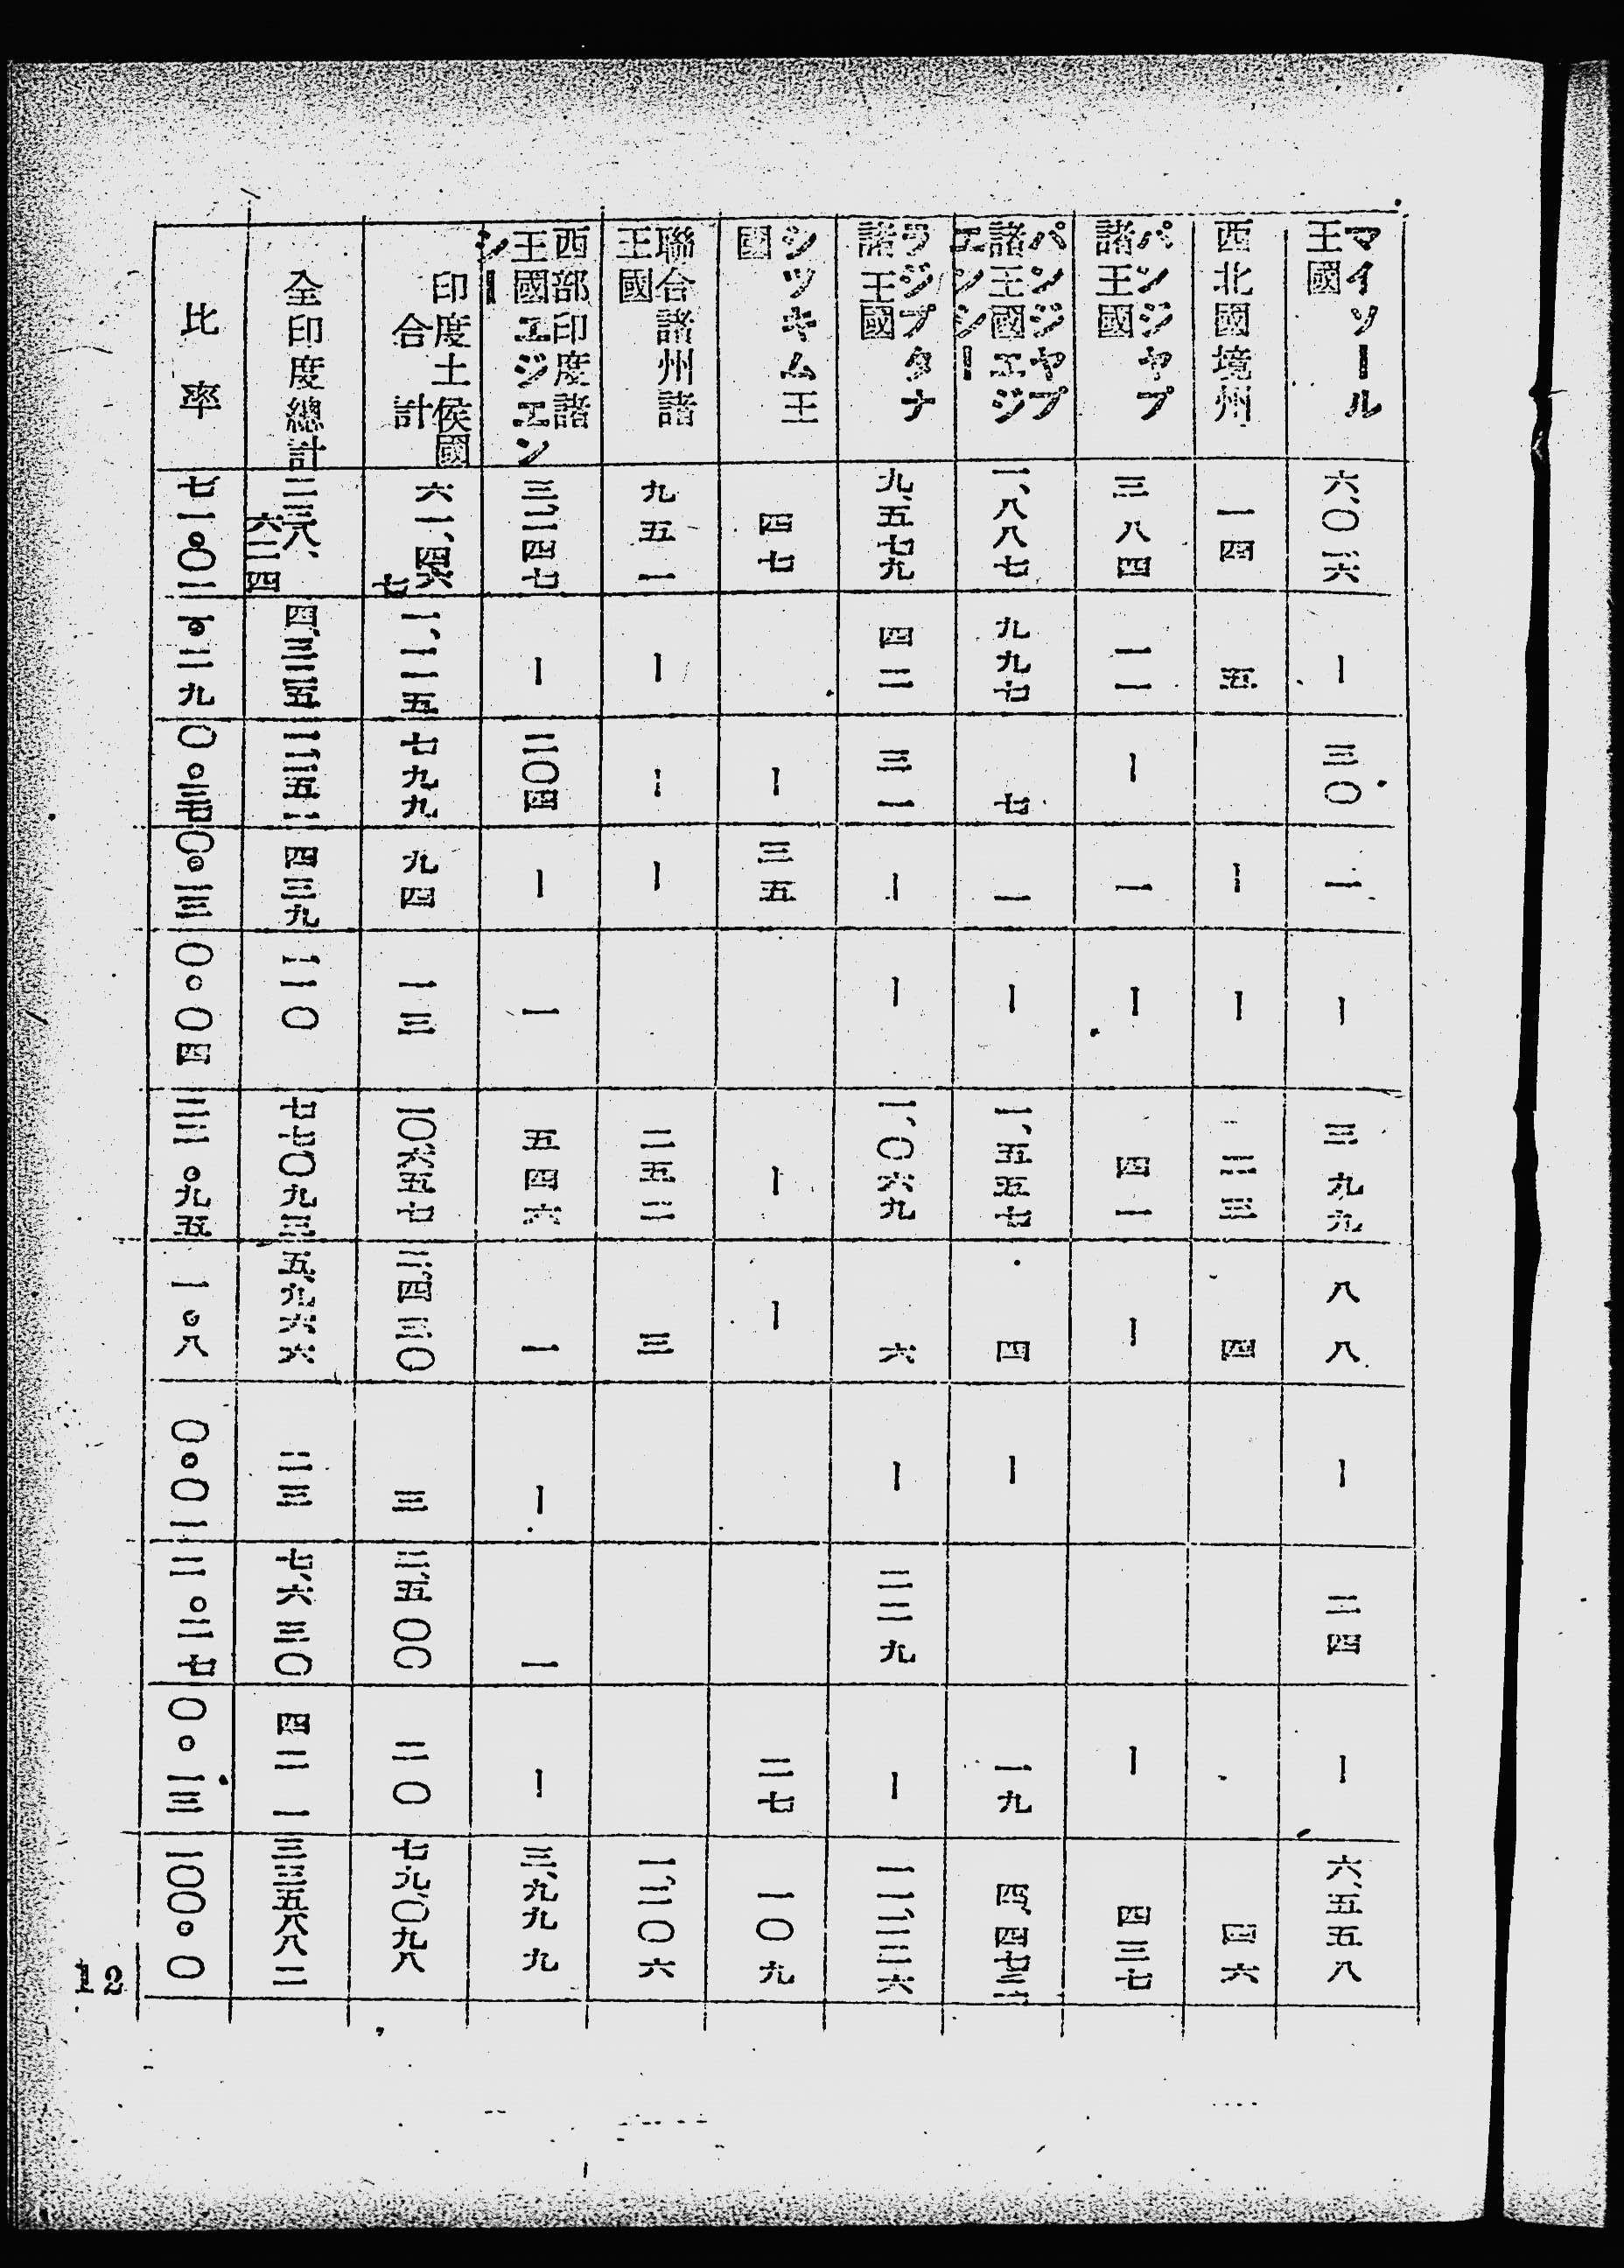 マイソール王國 六、〇二六 ー ー 三〇 一 ー 三九九 八八 ー 二四 ー 六、五五八
西北國境州 一四 五 ー ー 二三 四 四六
パンジヤブ諸王國 三八四 一一 ー 一 ー 四一 ー ー 四三七
パンジヤブ諸王國エジエンシー 一、八八七 九九七 七 一 ー 一、五五七 四 ー 一九 四、四七二
ラジプタナ諸王國 九、五七九 四二 三一 ー ー 一、〇六九 六 ー 二二九 ー 一一、二二六
シツキム王國 四七 ー 三五 ー ー 二七 一〇九
聯合諸州諸王國 九五一 ー ー ー 二五二 三 一、二〇六
西部印度諸王國エジエンシー 三、二四七 ー 二〇四 ー 一 五四六 一 ー 一 ー 三、九九九
印度土侯國合計 六一、四六七 一、一一五 七九九 九四 一三 一〇六五七 三、四三〇 三 二、五〇〇 二〇 七九、〇九八
全印度總計 二三八、六二四 四、三二五 一、二五二 四三九 一一〇 七七〇九三 五、九六六 二三 七、六三〇 四二一 三三五八八二
比率 七一・〇二 一・二九 〇・三七 〇・一三 〇・〇四 二二・九五 一・八 〇・〇一 二・二七 〇・一三 一〇〇・〇
12